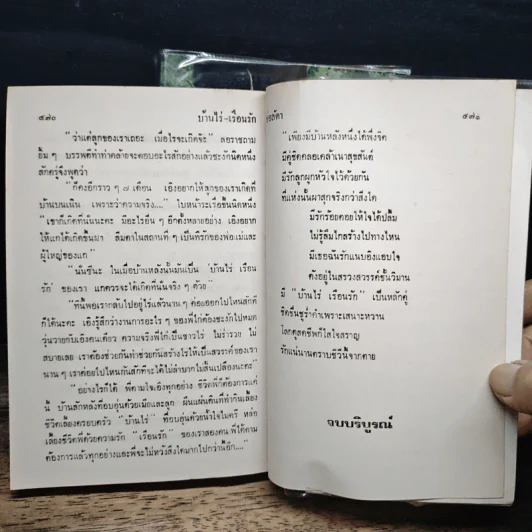 ๔๗๐ บ้านไร่-เรือนรัก
"ว่าแต่ลูกของเราเถอะ เมื่อไรจะเกิดจ๊ะ" ลอราชถาม
ยิ้ม ๆ บรรพตทำท่าคล้ายจะตอบอะไรสักอย่างแล้วชะงักนิดหนึ่ง
สักครู่จึงพูดว่า
"ก็คงอีกราว ๆ ๗ เดือน เอิงอยากให้ลูกของเราเกิดที่
บ้านบนเนิน เพราะว่าความจริง...." ใบหน้าระเรื่อขึ้นนิดหนึ่ง
"เขาก็เกิดที่นั่นนะคะ มีอะไรอื่น ๆ อีกตั้งหลายอย่าง เอิงอยาก
ให้แกได้เกิดขึ้นมา ลืมตาในสถานที่ ๆ เป็นที่รักของพ่อแม่และ
ผู้ใหญ่ของแก"
"นั่นซีนะ ในเมื่อบ้านหลังนั้นมันเป็น 'บ้านไร่ เรือน
รัก' ของเรา แกควรจะได้เกิดที่นั่นจริง ๆ ด้วย"
"ทีนี้พอเรากลับไปอยู่ไร่แล้วนาน ๆ ค่อยออกไปไหนสักที
ก็ได้นะคะ เอิงรู้สึกว่างานการอะไร ๆ ของพี่ไก่ต้องชะงักไปหมด
วุ่นวายกับเอิงคนเดียว ความจริงพี่ไก่เป็นชาวไร่ ไม่ร่ำรวย ไม่
สบายเลย เราต้องช่วยกันทำช่วยกันสร้างไร่ให้เป็นสวรรค์ของเรา
นาน ๆ เราค่อยไปไหนกันสักทีจะได้ไม่ลำบากไม่สิ้นเปลืองนะคะ"
"อย่างไรก็ได้ พี่ตามใจเอิงทุกอย่าง ชีวิตพี่ก็ต้องการแค่
นี้ บ้านสักหลังที่อบอุ่นด้วยเมียและลูก ผืนแผ่นดินที่ทำกินเลี้ยง
ชีวิตเลี้ยงครอบครัว "บ้านไร่" ที่อบอุ่นด้วยน้ำใจไมตรี หล่อ
เลี้ยงชีวิตพี่ด้วยความรัก "เรือนรัก" ของเราสองคน พี่ได้ตาม
ต้องการแล้วทุกอย่างและพี่จะไม่หวังสิ่งใดมากไปกว่านี้อีก...."
๔๗๑
"เพียงมีบ้านหลังหนึ่งได้พึ่งจิต
มีคู่ชิดคลอเคล้าเนาสุขสันต์
มีรักลูกผูกหัวใจไว้ด้วยกัน
ที่แห่งนั้นผาสุกจริงกว่าสิ่งใด
มีรักร้อยคอยให้ใจได้ปลื้ม
ไม่รู้ลืมไกลร้างไปทางไหน
มีเธอฉันรักแนบอิงแอบใจ
ดังอยู่ในสรวงสวรรค์ชั้นวิมาน
มี "บ้านไร่ เรือนรัก" เป็นหลักคู่
ชิดชื่นชู้ร่ำคำเพราะเสนาะหวาน
โลกดุสดชีพก็ใสใจสราญ
รักแน่นานคราบชีวีนี้จากคาย
จบบริบูรณ์